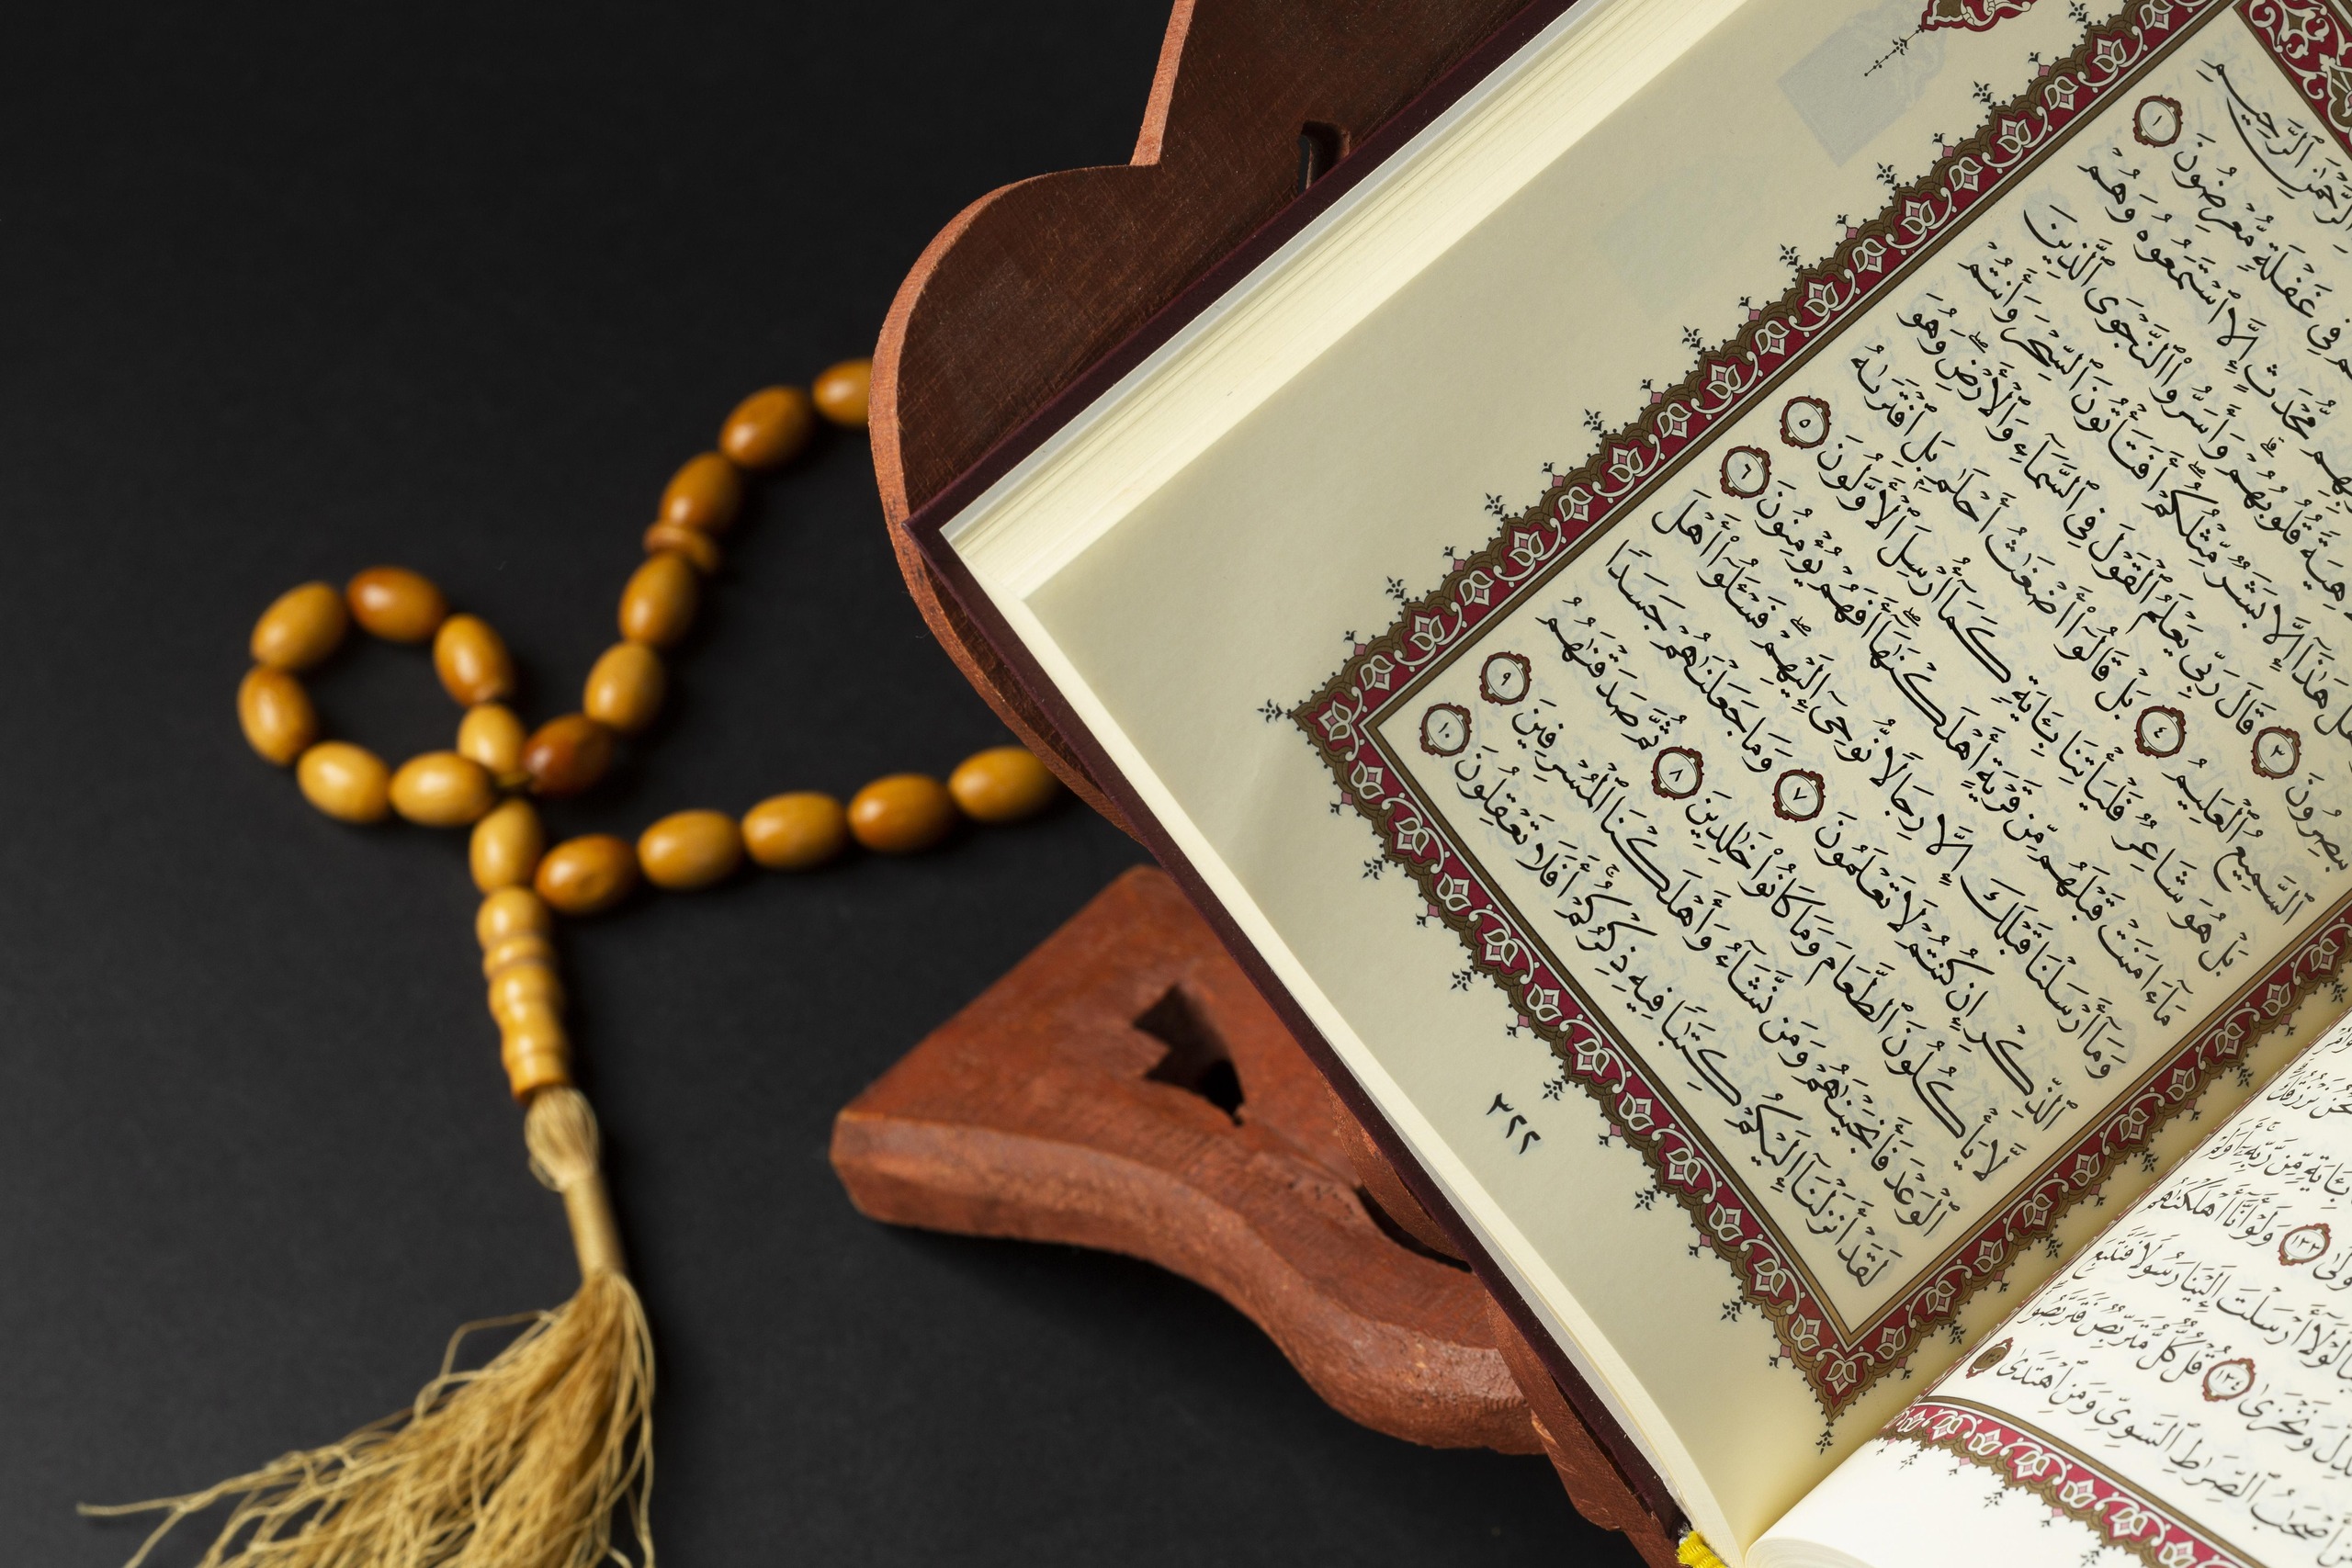 ٱلرَّحْمَٰنِ ٱلرَّحِيمِ
فِى غَفْلَةٍ مُّعْرِضُونَ ١
مُّحْدَثٍ إِلَّا ٱسْتَمَعُوهُ وَهُمْ
قُلُوبُهُمْ ۗ وَأَسَرُّوا۟ ٱلنَّجْوَى ٱلَّذِينَ
هَلْ هَٰذَآ إِلَّا بَشَرٌ مِّثْلُكُمْ ۖ أَفَتَأْتُونَ ٱلسِّحْرَ وَأَنتُمْ
تُبْصِرُونَ ٣ قَالَ رَبِّى يَعْلَمُ ٱلْقَوْلَ فِى ٱلسَّمَآءِ وَٱلْأَرْضِ ۖ وَهُوَ
ٱلسَّمِيعُ ٱلْعَلِيمُ ٤ بَلْ قَالُوٓا۟ أَضْغَٰثُ أَحْلَٰمٍۭ بَلِ ٱفْتَرَىٰهُ
بَلْ هُوَ شَاعِرٌ فَلْيَأْتِنَا بِـَٔايَةٍ كَمَآ أُرْسِلَ ٱلْأَوَّلُونَ ٥
مَآ ءَامَنَتْ قَبْلَهُم مِّن قَرْيَةٍ أَهْلَكْنَٰهَآ ۖ أَفَهُمْ يُؤْمِنُونَ ٦
وَمَآ أَرْسَلْنَا قَبْلَكَ إِلَّا رِجَالًا نُّوحِىٓ إِلَيْهِمْ ۖ فَسْـَٔلُوٓا۟ أَهْلَ
ٱلذِّكْرِ إِن كُنتُمْ لَا تَعْلَمُونَ ٧ وَمَا جَعَلْنَٰهُمْ جَسَدًا
لَّا يَأْكُلُونَ ٱلطَّعَامَ وَمَا كَانُوا۟ خَٰلِدِينَ ٨ ثُمَّ صَدَقْنَٰهُمُ
ٱلْوَعْدَ فَأَنجَيْنَٰهُمْ وَمَن نَّشَآءُ وَأَهْلَكْنَا ٱلْمُسْرِفِينَ ٩
لَقَدْ أَنزَلْنَآ إِلَيْكُمْ كِتَٰبًا فِيهِ ذِكْرُكُمْ ۖ أَفَلَا تَعْقِلُونَ ١٠
٣٢٢
نَرْزُقُكَ
بِـَٔايَةٍ مِّن رَّبِّهِۦٓ ۚ أَوَلَمْ
ٱلْأُولَىٰ ١٣٣ وَلَوْ أَنَّآ أَهْلَكْنَٰهُم
لَوْلَآ أَرْسَلْتَ إِلَيْنَا رَسُولًا فَنَتَّبِعَ
وَنَخْزَىٰ ١٣٤ قُلْ كُلٌّ مُّتَرَبِّصٌ فَتَرَبَّصُوا۟
أَصْحَٰبُ ٱلصِّرَٰطِ ٱلسَّوِىِّ وَمَنِ ٱهْتَدَىٰ